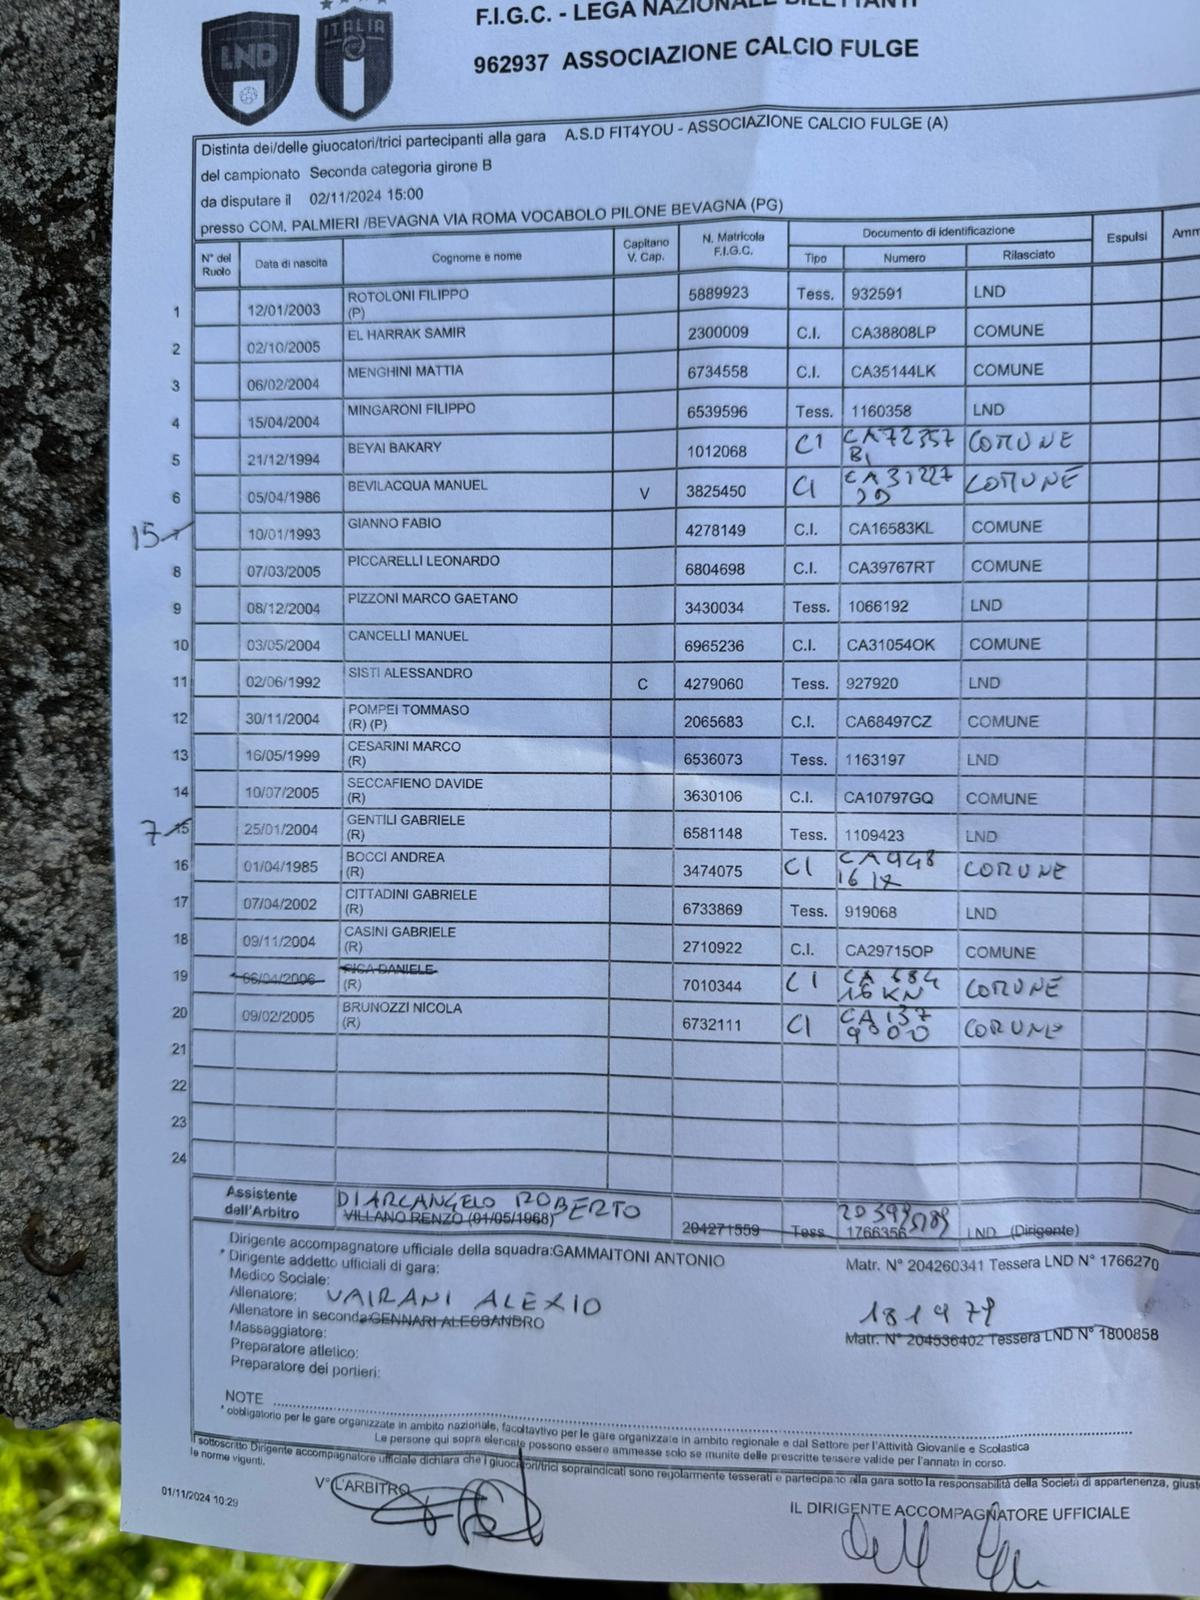 LND
ITALIA
F.I.G.C. - LEGA NAZIONALE DILETTANTI
962937 ASSOCIAZIONE CALCIO FULGE
Distinta dei/delle giuocatori/trici partecipanti alla gara A.S.D FIT4YOU - ASSOCIAZIONE CALCIO FULGE (A)
del campionato Seconda categoria girone B
da disputare il 02/11/2024 15:00
presso COM. PALMIERI /BEVAGNA VIA ROMA VOCABOLO PILONE BEVAGNA (PG)
N° del Ruolo Data di nascita Cognome e nome Capitano V. Cap. N. Matricola F.I.G.C. Documento di identificazione Espulsi Amm
Tipo Numero Rilasciato
1 12/01/2003 ROTOLONI FILIPPO (P) 5889923 Tess. 932591 LND
2 02/10/2005 EL HARRAK SAMIR 2300009 C.I. CA38808LP COMUNE
3 06/02/2004 MENGHINI MATTIA 6734558 C.I. CA35144LK COMUNE
4 15/04/2004 MINGARONI FILIPPO 6539596 Tess. 1160358 LND
5 21/12/1994 BEYAI BAKARY 1012068 CI CA72357 COMUNE
6 05/04/1986 BEVILACQUA MANUEL V 3825450 CI CA31227 COMUNE
15 7 10/01/1993 GIANNO FABIO 4278149 C.I. CA16583KL COMUNE
8 07/03/2005 PICCARELLI LEONARDO 6804698 C.I. CA39767RT COMUNE
9 08/12/2004 PIZZONI MARCO GAETANO 3430034 Tess. 1066192 LND
10 03/05/2004 CANCELLI MANUEL 6965236 C.I. CA31054OK COMUNE
11 02/06/1992 SISTI ALESSANDRO C 4279060 Tess. 927920 LND
12 30/11/2004 POMPEI TOMMASO (R) (P) 2065683 C.I. CA68497CZ COMUNE
13 16/05/1999 CESARINI MARCO (R) 6536073 Tess. 1163197 LND
14 10/07/2005 SECCAFIENO DAVIDE (R) 3630106 C.I. CA10797GQ COMUNE
7 15 25/01/2004 GENTILI GABRIELE (R) 6581148 Tess. 1109423 LND
16 01/04/1985 BOCCI ANDREA (R) 3474075 CI CA948 COMUNE
17 07/04/2002 CITTADINI GABRIELE (R) 6733869 Tess. 919068 LND
18 09/11/2004 CASINI GABRIELE (R) 2710922 C.I. CA29715OP COMUNE
19 06/04/2006 PICA DANIELE (R) 7010344 CI CA 684 16 KN COMUNE
20 09/02/2005 BRUNOZZI NICOLA (R) 6732111 CI CA 137 COMUNE
21
22
23
24
Assistente dell'Arbitro DI ARCANGELO ROBERTO
VILLANO RENZO (01/05/1968) 204271559 Tess 1766356 LND (Dirigente)
Dirigente accompagnatore ufficiale della squadra:GAMMAITONI ANTONIO Matr. N° 204260341 Tessera LND N° 1766270
* Dirigente addetto ufficiali di gara:
Medico Sociale:
Allenatore: VAIRANI ALEXIO 181979
Allenatore in seconda:GENNARI ALESSANDRO Matr. N° 204536402 Tessera LND N° 1800858
Massaggiatore:
Preparatore atletico:
Preparatore dei portieri:
NOTE
* obbligatorio per le gare organizzate in ambito nazionale, facoltavtivo per le gare organizzate in ambito regionale e dal Settore per l'Attività Giovanile e Scolastica
Le persone qui sopra elencate possono essere ammesse solo se munite delle prescritte tessere valide per l'annata in corso.
I sottoscritto Dirigente accompagnatore ufficiale dichiara che i giuocatori/trici sopraindicati sono regolarmente tesserati e partecipano alla gara sotto la responsabilità della Società di appartenenza, giuste
le norme vigenti.
01/11/2024 10:29
V° L'ARBITRO
IL DIRIGENTE ACCOMPAGNATORE UFFICIALE